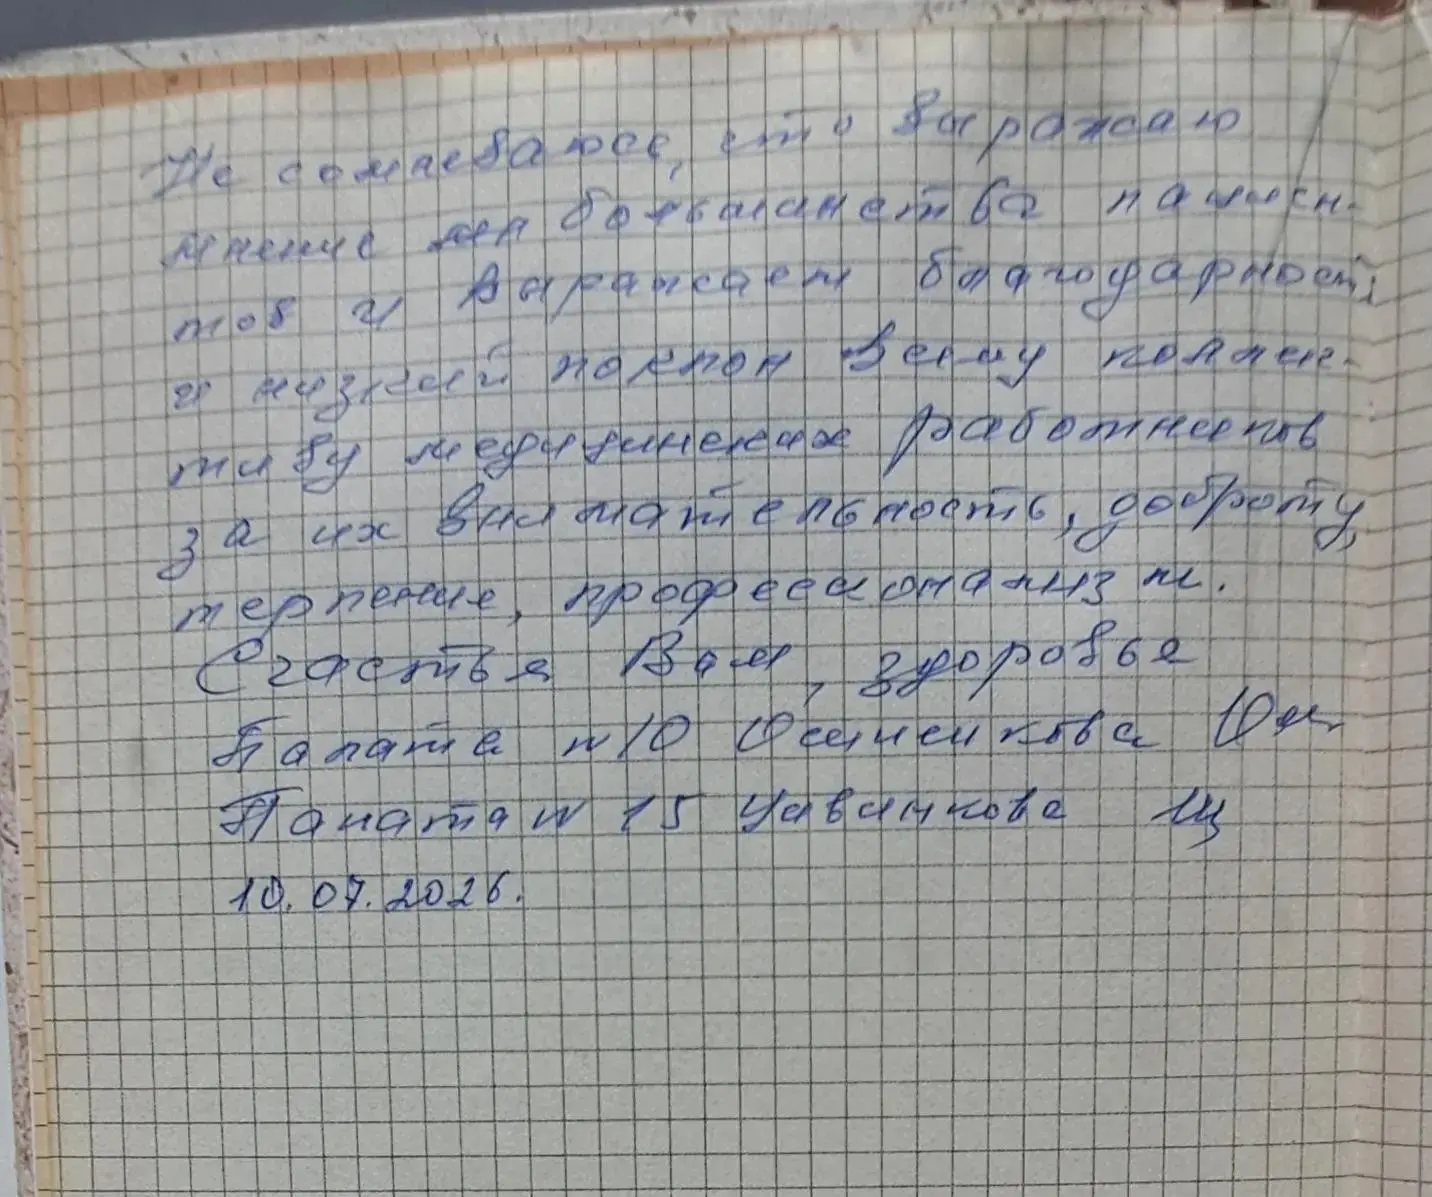 Не сомневаюсь, что выражаю
мнение большинства пациен-
тов и выражаем благодарность
и низкий поклон всему коллек-
тиву медицинских работников
за их внимательность, доброту,
терпение, профессионализм.
Счастья Вам, здоровья
Палата №10
Палата № 15
10.07.2026.